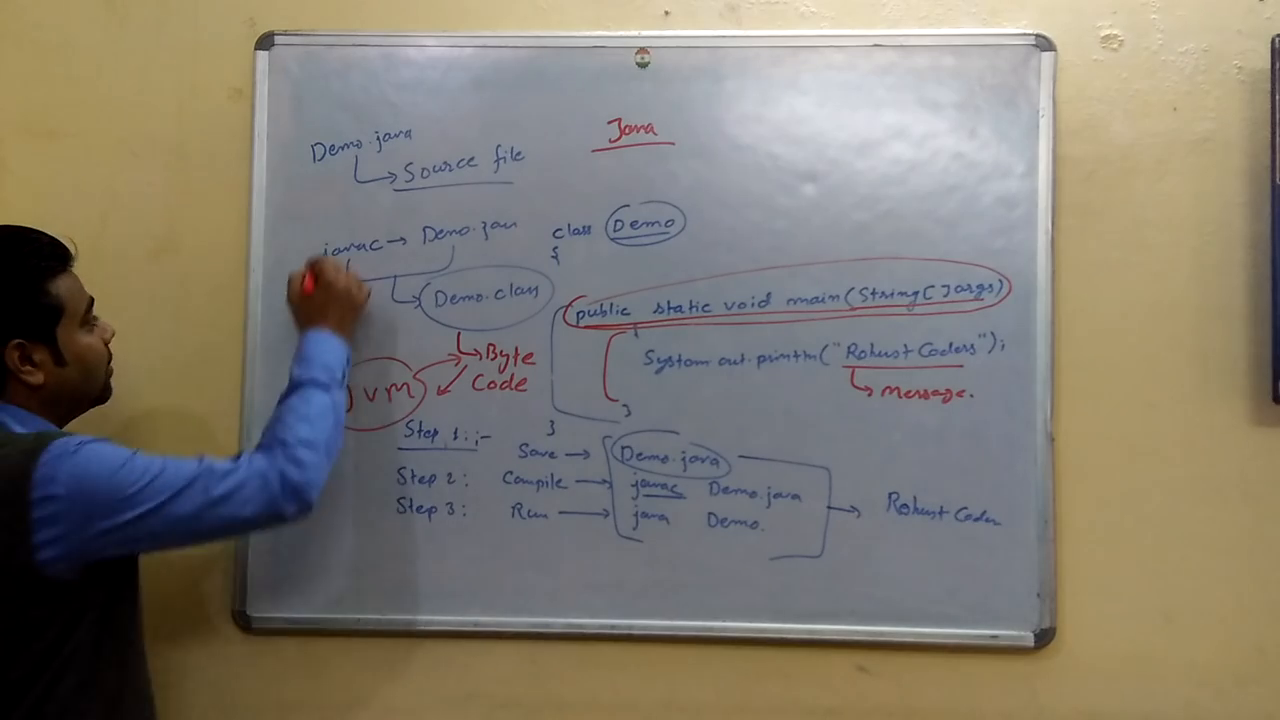 Java
Demo.java
Source file
javac → Demo.java
Demo.class
Byte
Code
JVM
class Demo
{
public static void main(String[]args)
{
System.out.println("Robust Coders");
Message.
}
}
Step 1:- Save → Demo.java
Step 2: Compile → javac Demo.java
Step 3: Run → java Demo.
→ Robust Coder